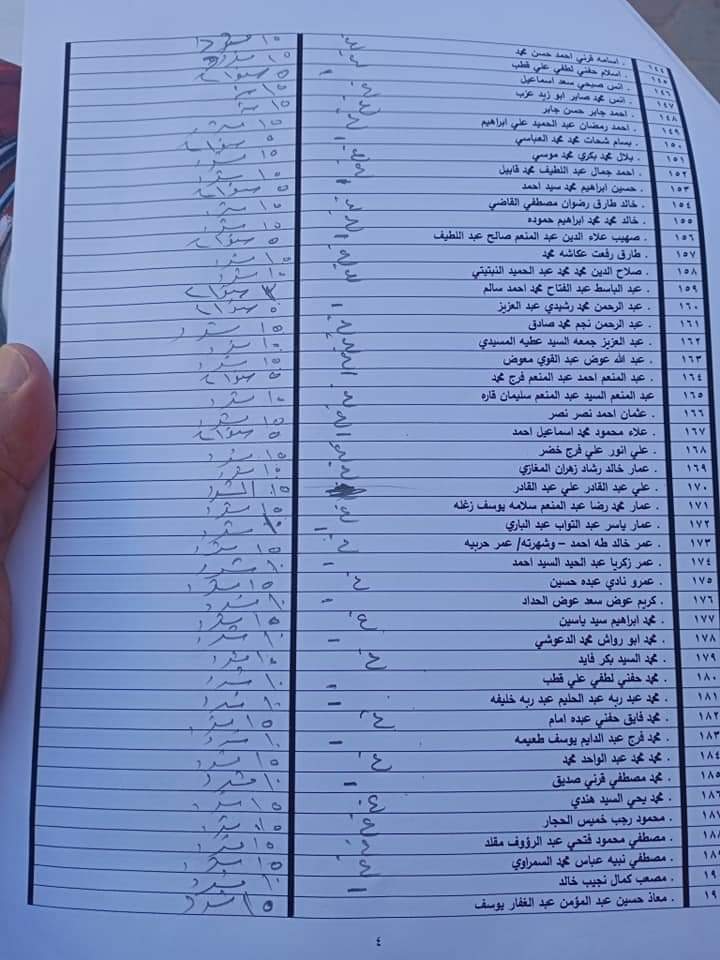 ١٤٤ . اسامه قرني احمد حسن محمد غ ١٥ مشدد
١٤٥ . اسلام حفني لطفي علي قطب غ ١٥ مشدد
١٤٦ . انس صبحي سعد اسماعيل ٥ سنوات
١٤٧ . انس محمد صابر ابو زيد عزب غ ١٥ سنة
١٤٨ . احمد جابر حسن جابر غ ١٥ سنة
١٤٩ . احمد رمضان عبد الحميد علي ابراهيم غ ١٥ مشدد
١٥٠ . بسام شحات محمد محمد العباسي ٥ سنوات
١٥١ . بلال محمد بكري محمد موسي غ ١٥ مشدد
١٥٢ . احمد جمال عبد اللطيف محمد قابيل غ ١٥ مشدد
١٥٣ . حسين ابراهيم محمد سيد احمد ٥ سنوات
١٥٤ . خالد طارق رضوان مصطفي القاضي غ ١٥ مشدد
١٥٥ . خالد محمد محمد ابراهيم حموده غ ١٥ مشدد
١٥٦ . صهيب علاء الدين عبد المنعم صالح عبد اللطيف ٥ سنوات
١٥٧ . طارق رفعت عكاشه محمد غ ١٥ مشدد
١٥٨ . صلاح الدين محمد محمد عبد الحميد النبتيتي ١٠ مشدد
١٥٩ . عبد الباسط عبد الفتاح محمد احمد سالم ٣ سنوات
١٦٠ . عبد الرحمن محمد رشيدي عبد العزيز ٥ سنوات
١٦١ . عبد الرحمن نجم محمد صادق غ ١٥ مشدد
١٦٢ . عبد العزيز جمعه السيد عطيه المسيدي ١٠ مشدد
١٦٣ . عبد الله عوض عبد القوي معوض غ ١٥ مشدد
١٦٤ . عبد المنعم احمد عبد المنعم فرج محمد ٥ سنوات
١٦٥ عبد المنعم السيد عبد المنعم سليمان قاره ١٠ مشدد
١٦٦ . عثمان احمد نصر نصر غ ١٥ مشدد
١٦٧ . علاء محمود محمد اسماعيل احمد ٥ سنوات
١٦٨ . علي انور علي فرج خضر غ ١٥ مشدد
١٦٩ . عمار خالد رشاد زهران المغازي ١٠ مشدد
١٧٠ . علي عبد القادر علي عبد القادر ١٥ المشدد
١٧١ . عمار محمد رضا عبد المنعم سلامه يوسف زغله غ ١٥ مشدد
١٧٢ . عمار ياسر عبد التواب عبد الباري ١٠ مشدد
١٧٣ . عمر خالد طه احمد – وشهرته/ عمر حربيه غ ١٥ مشدد
١٧٤ . عمر زكريا عبد الحيد السيد احمد – ١٠ مشدد
١٧٥ . عمرو نادي عبده حسين غ ١٥ مشدد
١٧٦ . كريم عوض سعد عوض الحداد – ١٠ مشدد
١٧٧ . محمد ابراهيم سيد ياسين غ ١٥ مشدد
١٧٨ . محمد ابو رواش محمد الدعوشي – ١٠ مشدد
١٧٩ . محمد السيد بكر فايد غ ١٥ مشدد
١٨٠ . محمد حفني لطفي علي قطب – ١٠ مشدد
١٨١ . محمد عبد ربه عبد الحليم عبد ربه خليفه – ١٠ مشدد
١٨٢ . محمد فايق حفني عبده امام غ ١٥ مشدد
١٨٣ . محمد فرج عبد الدايم يوسف طعيمه – ١٠ مشدد
١٨٤ . محمد محمد عبد الواحد محمد غ ١٥ مشدد
١٨٥ . محمد مصطفي قرني صديق – ١٠ مشدد
١٨٦ . محمد يحي السيد هندي غ ١٥ مشدد
١٨٧ . محمود رجب خميس الحجار غ ١٥ مشدد
١٨٨ . مصطفي محمود فتحي عبد الرؤوف مقلد غ ١٥ مشدد
١٨٩ . مصطفي نبيه عباس محمد السمراوي غ ١٥ مشدد
١٩ . مصعب كمال نجيب خالد – ١٠ مشدد
١٩ . معاذ حسين عبد المؤمن عبد الغفار يوسف ١٥ مشدد
٤